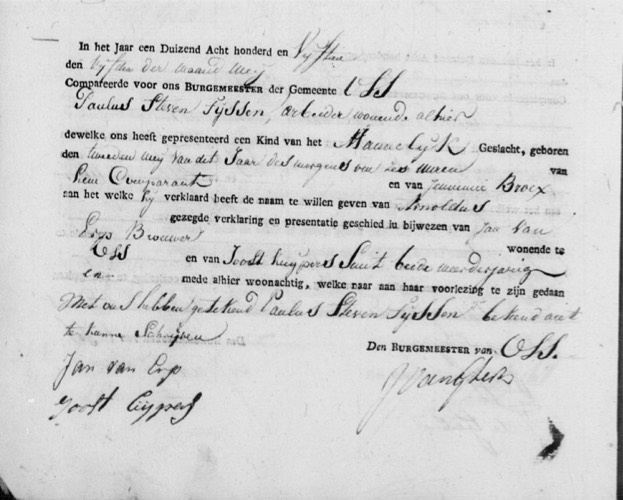 In het Jaar een Duizend Acht honderd en Vyftien
den Vyfden der maand mey
Compareerde voor ons BURGEMEESTER der Gemeente OSS
Paulus Steven Tyssen, arbeider wonende alhier
dewelke ons heeft gepresenteerd een Kind van het Mannelyk Geslacht, geboren
den tweeden mey van dit Jaar des morgens om zes uuren van
hem Comparant en van Jenneme Broex
aan het welke hy verklaard heeft de naam te willen geven van Arnoldus
gezegde verklaring en presentatie geschied in bijwezen van Jan van
Erp Brouwer wonende te
OSS en van Joost Kuypers beide meerderjarig
en mede alhier woonachtig, welke naar aan haar voorlezing te zijn gedaan
Met ons hebben getekend Paulus Steven Tyssen
te kunne Schryven
Den BURGEMEESTER van OSS.
Jan van Erp
Joost Cuypers